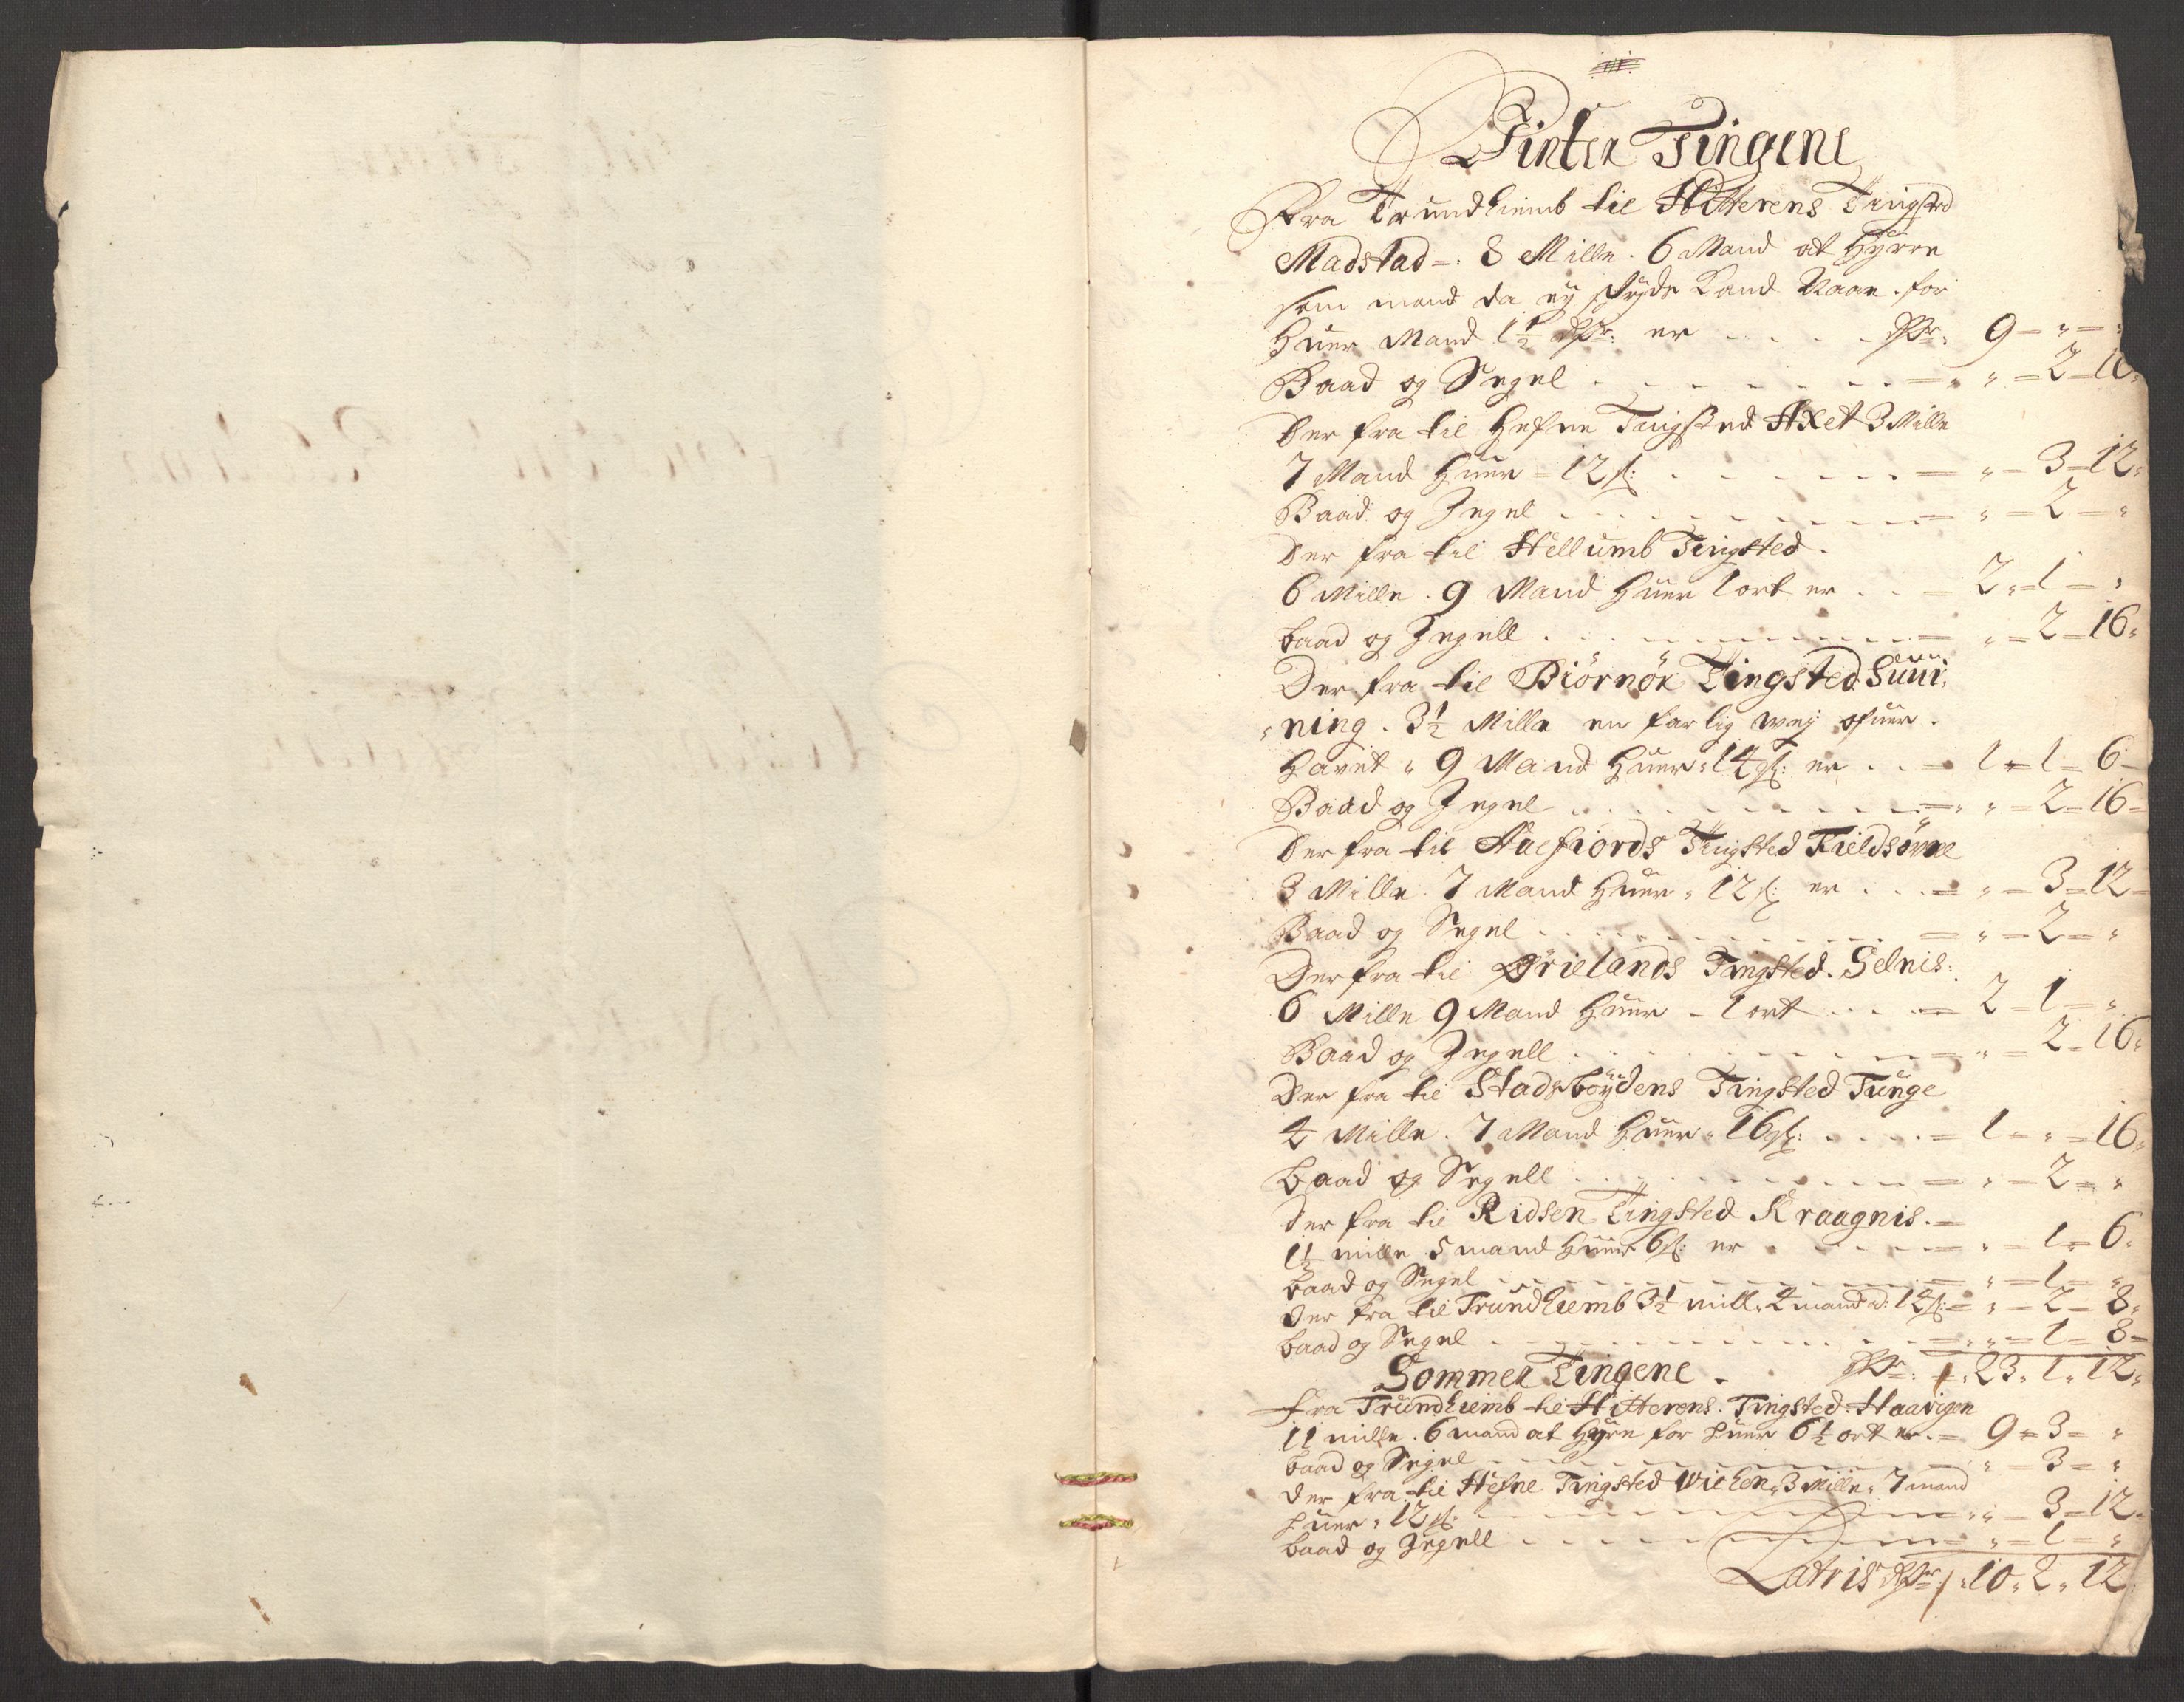 Winter Tingene
Fra Trundhiemb til Hitterens Tingsted
Madstad =: 8 Mille. 6 Mand at Hyrre
som mand da ey skyds kand Naae. for
Huer Mand 1½ Rdr: er . . . . . Rdr: 9 = " = "
Baad og Segel . . . . . . . . = " = 2 = 16
Der fra til Hefne Tingsted Axet 3 Mille
7 Mand Huer = 12 s: . . . . . . . = " = 3 = 12
Baad og Zegel . . . . . . . . . = " = 2 = "
Der fra til Hellumb Tingsted.
6 Mille. 9 Mand Huer 1 ort er . . = 2 = 1 = "
baad og Zegell . . . . . . . . = " = 2 = 16
Der fra til Biörnör Tingsted Suui,
"ning. 3½ Mille en farlig weg ofuer.
Havet " 9 Mand Huer " 14 s: er . . = 1 = 1 = 6
Baad og Zegel . . . . . . . . = " = 2 = 16
Der fra til Aaefiords Tingsted Kieldsöure
3 Mille 7 Mand Huer " 12 s: er . . . = " = 3 = 12
Baad og Segel . . . . . . . . . = " = 2 = "
Der fra til Ørielands Tingsted. Selnis:
6 Mille 9 Mand Huer = 1 ort . . . = 2 = 1 = "
Baad og Zegell . . . . . . . . = " = 2 = 16
Der fra til Stadsböydens Tingsted Tunge
4 Mille. 7 Mand Huer " 16 s: . . . . = 1 = " = 16
baad og Segell . . . . . . . . = " = 2 = "
Der fra til Ridsen Tingsted Kraagnis. =
1½ mille 5 mand Huer 6 s: er . . . . = " = 1 = 6
baad og Segel . . . . . . . . = " = 1 = "
der fra til Trundhiemb 3½ mill. 4 mand ad: 14 s: = " = 2 = 8
baad og Segel . . . . . . . . = " = 1 = 8
Sommer Tingene. Rdr: 23. 1. 12
Fra Trundhiemb til Hitterens. Tingsted. Haavigen
11 mille. 6 mand at Hyre for huer 6½ ort er. = 9 = 3 = "
baad og Segel . . . . . . . . " = 3 = "
der fra til Hefne Tingsted Wichen, 3 Mille, 7 mand
huer " 12 s: . . . . . . . . " = 3 = 12
baad og Zegell . . . . . . . . = " = 1 = "
Latris Rdr 10. 2. 12